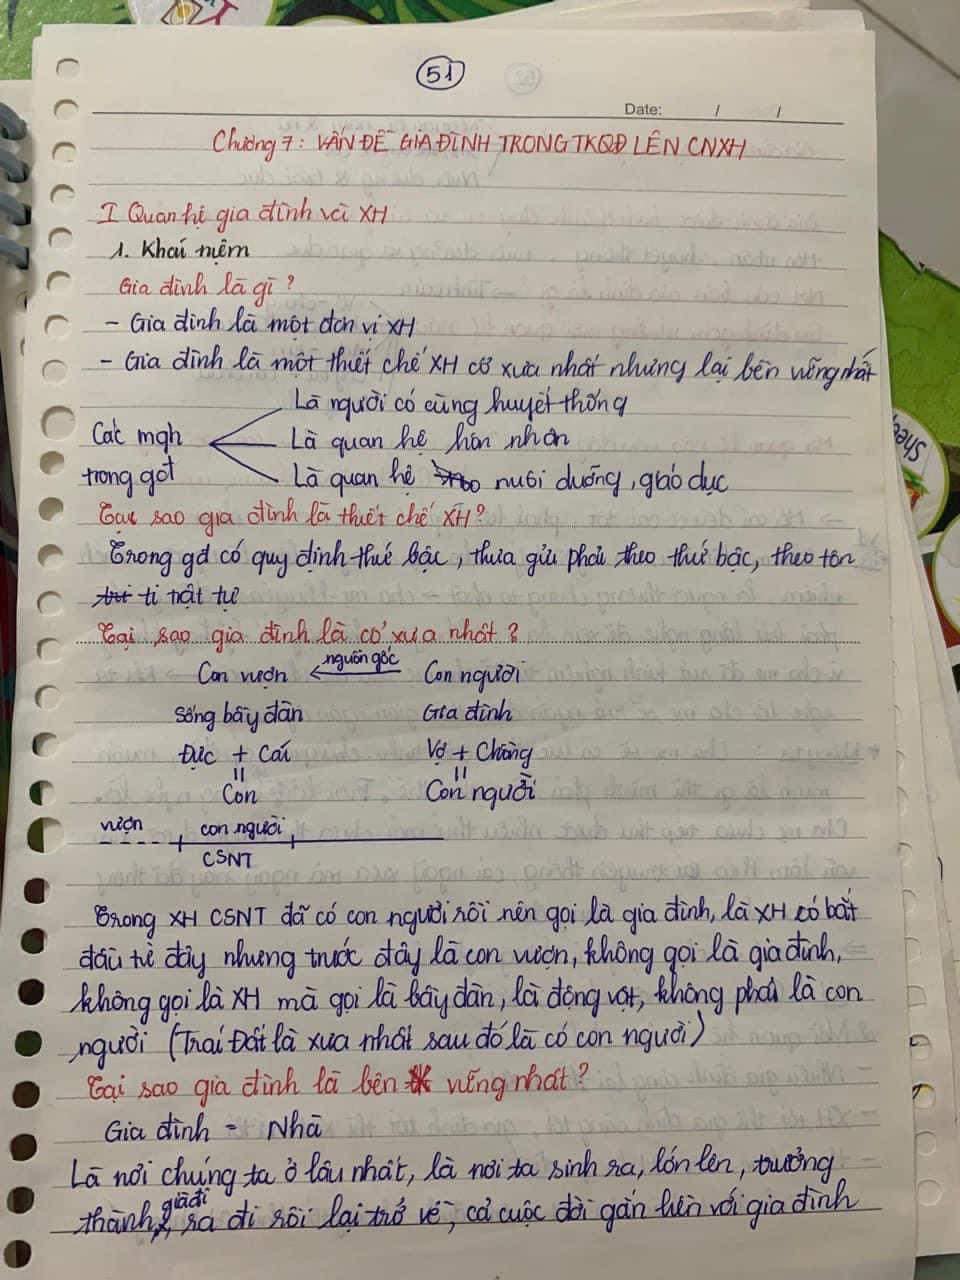 51
Date: / /
Chương 7: VẤN ĐỀ GIA ĐÌNH TRONG TKQĐ LÊN CNXH
I Quan hệ gia đình với XH
1. Khái niệm
Gia đình là gì?
- Gia đình là một đơn vị XH
- Gia đình là một thiết chế XH cổ xưa nhất nhưng lại bền vững nhất
Là người có cùng huyết thống
Các mqh Là quan hệ hôn nhân
trong gđt Là quan hệ nuôi dưỡng, giáo dục
Tại sao gia đình là thiết chế XH?
Trong gđ có quy định thứ bậc, thưa gửi phải theo thứ bậc, theo tôn
ti trật tự
Tại sao gia đình là cổ xưa nhất?
Con vượn nguồn gốc Con người
Sống bầy đàn Gia đình
Đực + Cái Vợ + Chồng
= =
Con Con người
vượn con người
CSNT
Trong XH CSNT đã có con người rồi nên gọi là gia đình, là XH có bắt
đầu từ đây nhưng trước đây là con vượn, không gọi là gia đình,
không gọi là XH mà gọi là bầy đàn, là động vật, không phải là con
người (Trái Đất là xưa nhất sau đó là có con người)
Tại sao gia đình là bền vững nhất?
Gia đình = Nhà
Là nơi chúng ta ở lâu nhất, là nơi ta sinh ra, lớn lên, trưởng
thành, già đi, ra đi rồi lại trở về, cả cuộc đời gắn liền với gia đình